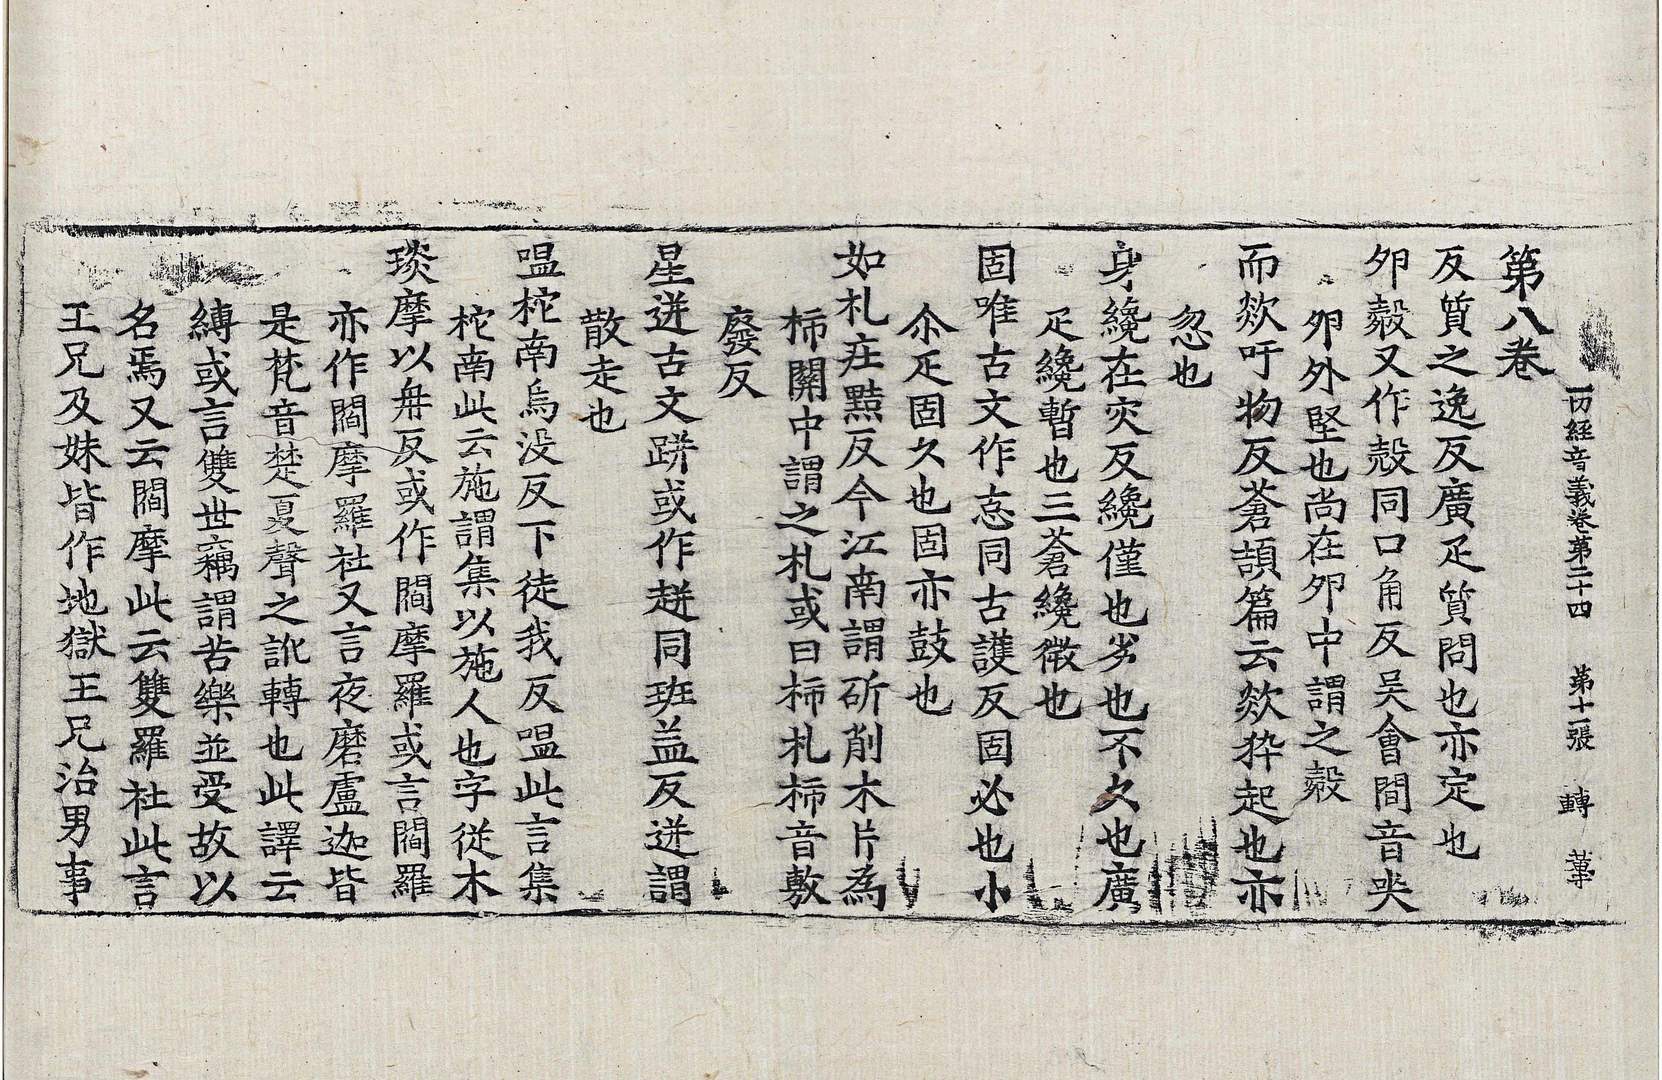 一切經音義卷第二十四　第十一張　轉　葦
第八卷
反質之逸反廣疋質問也亦定也
夘㲉又作殼同口角反吴會間音哭
夘外堅也尚在夘中謂之㲉
而欻吁物反蒼頡篇云欻猝起也亦
忽也
身纔在灾反纔僅也劣也不久也廣
疋纔暫也三蒼纔微也
固唯古文作怘同古護反固必也小
尒疋固久也固亦鼓也
如札庄黠反今江南謂斫削木片為
柹關中謂之札或曰柹札柹音敷
廢反
星迸古文跰或作趀同班益反迸謂
散走也
嗢柁南烏没反下徒我反嗢此言集
柁南此云施謂集以施人也字從木
琰摩以冉反或作閻摩羅或言閻羅
亦作閻摩羅社又言夜磨盧迦皆
是梵音楚夏聲之訛轉也此譯云
縛或言雙世竊謂苦樂並受故以
名焉又云閻摩此云雙羅社此言
王兄及妹皆作地獄王兄治男事